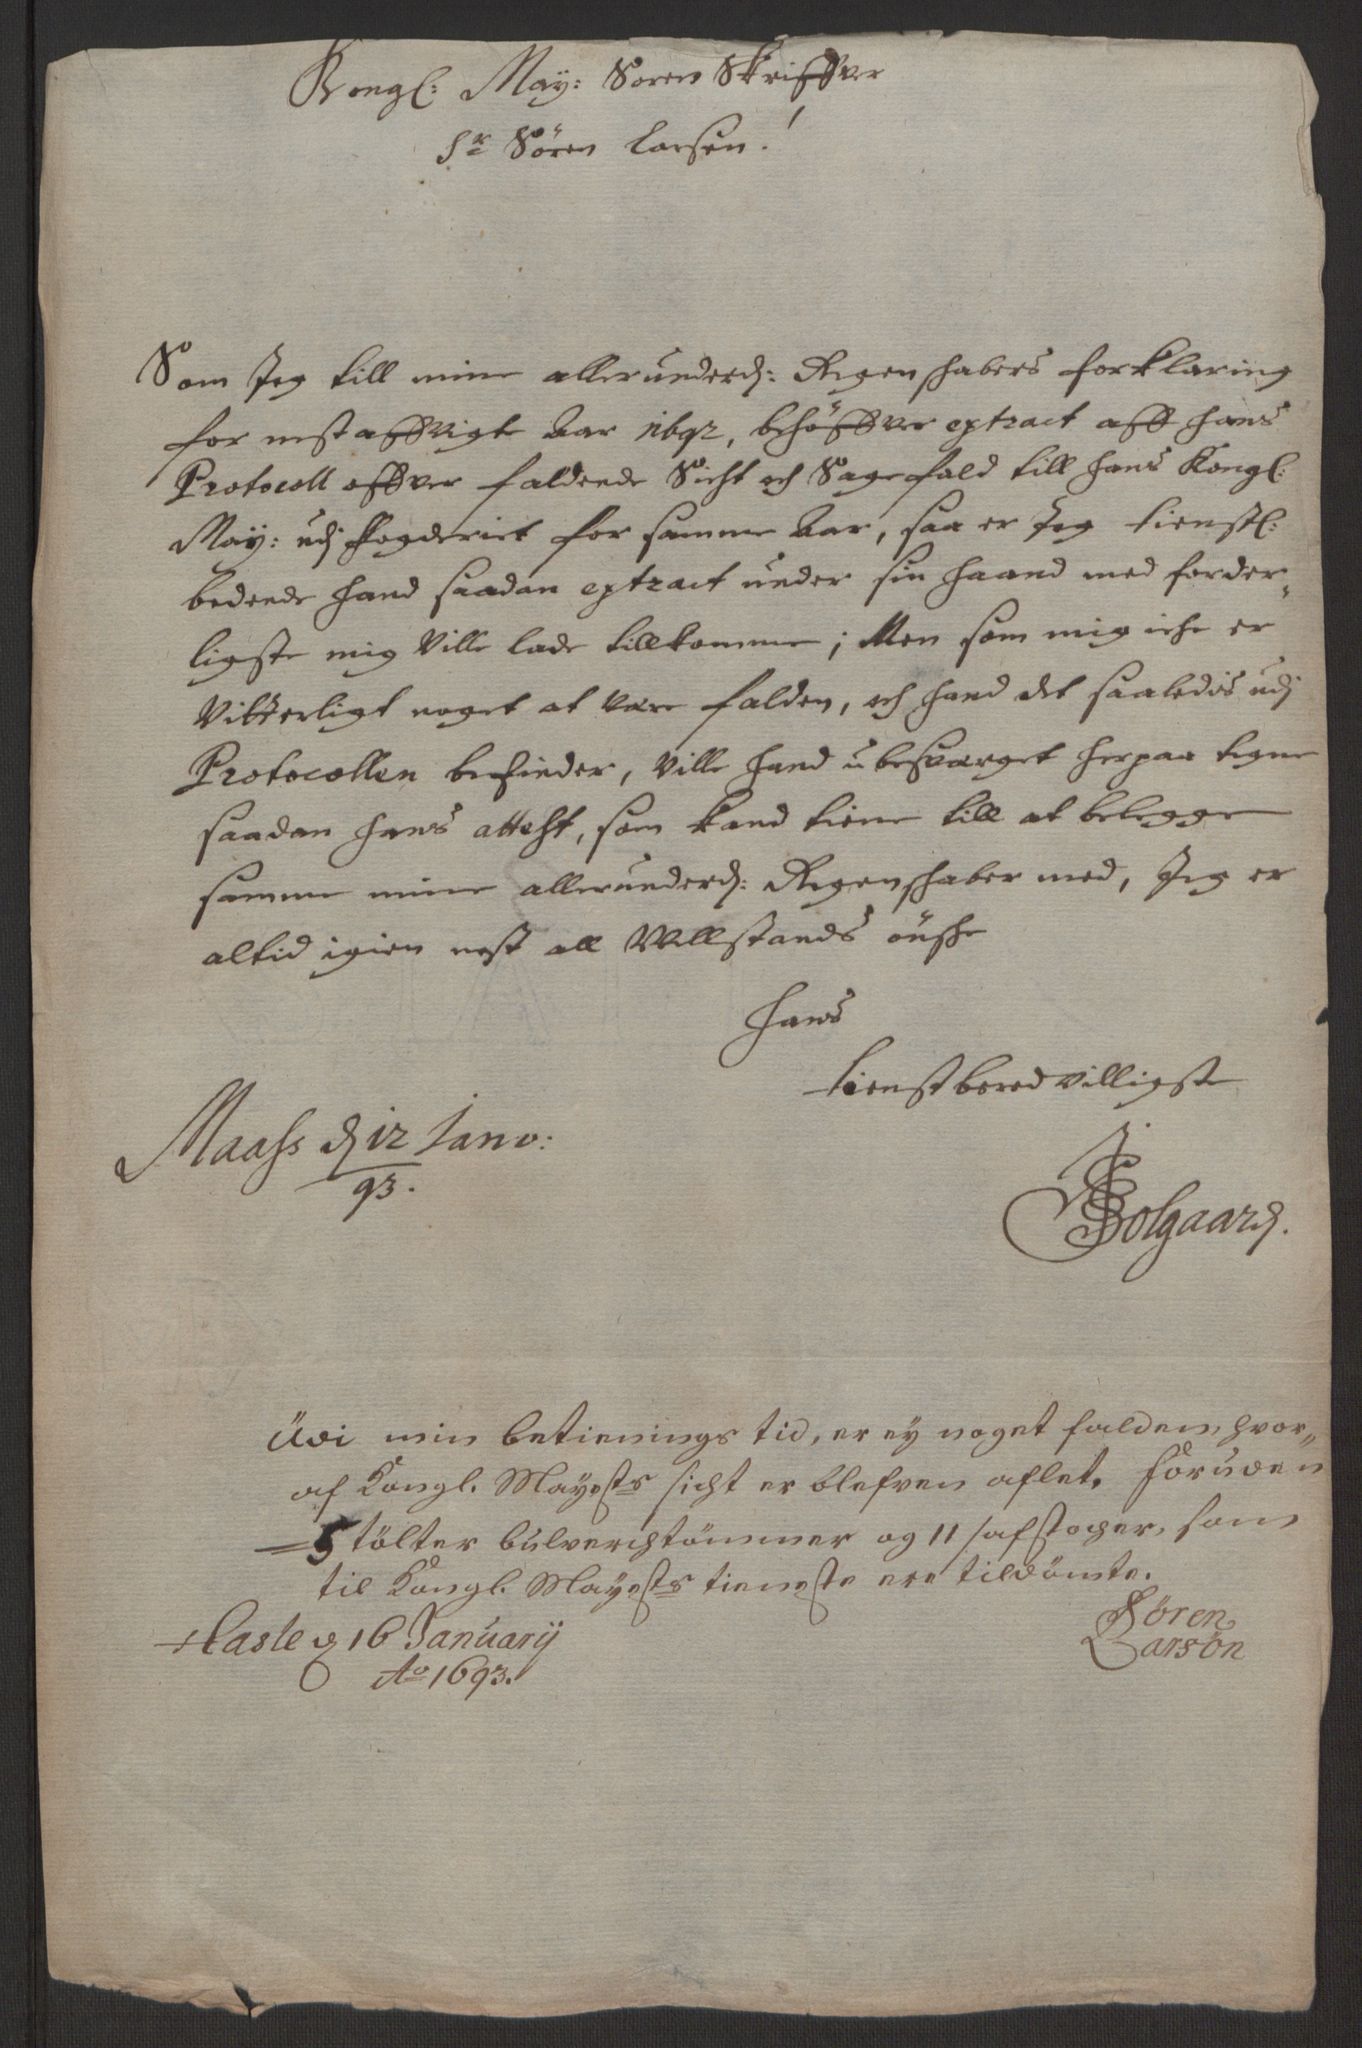 Kongl: May: Soren Skriffver
Sr Sören Larsen!
Som Jeg till mine allerunderd: Regenschabers forklaring
for nest affvigte Aar 1692, behöffver extract aff hans
Protocoll offver faldende Sicht och Sagefald till hans Kongl:
May: udj fogderiet for samme Aar, saa er Jeg tienstl:
bedende hand saadan extract under sin haand med forder-
ligste mig Ville lade tillkomme; Men som mig iche er
Vitterligt noget at være falden, och hand det saaledis udj
Protocollen befinder, Ville hand ubesværget herpaa tegne
saadan hans attest, som kand tiene till at belegge
samme mine allerunderd: Regenschaber med, Jeg er
altid igien nest all Wellstands önsche
Hans
tienstberedvilligste
Maass d 12 Janv:
93.
Solgaard.
Udi min betienings tid, er ey noget falden, hvor-
af Kongl. Mayests sicht er blefven aflet, foruden
5 tölter bulverchtömmer og 11 safstocher, som
til Kongl. Mayests tieneste ere tildömte.
Hasle d 16 Januarij
Ao 1693.
Sören
Larsön